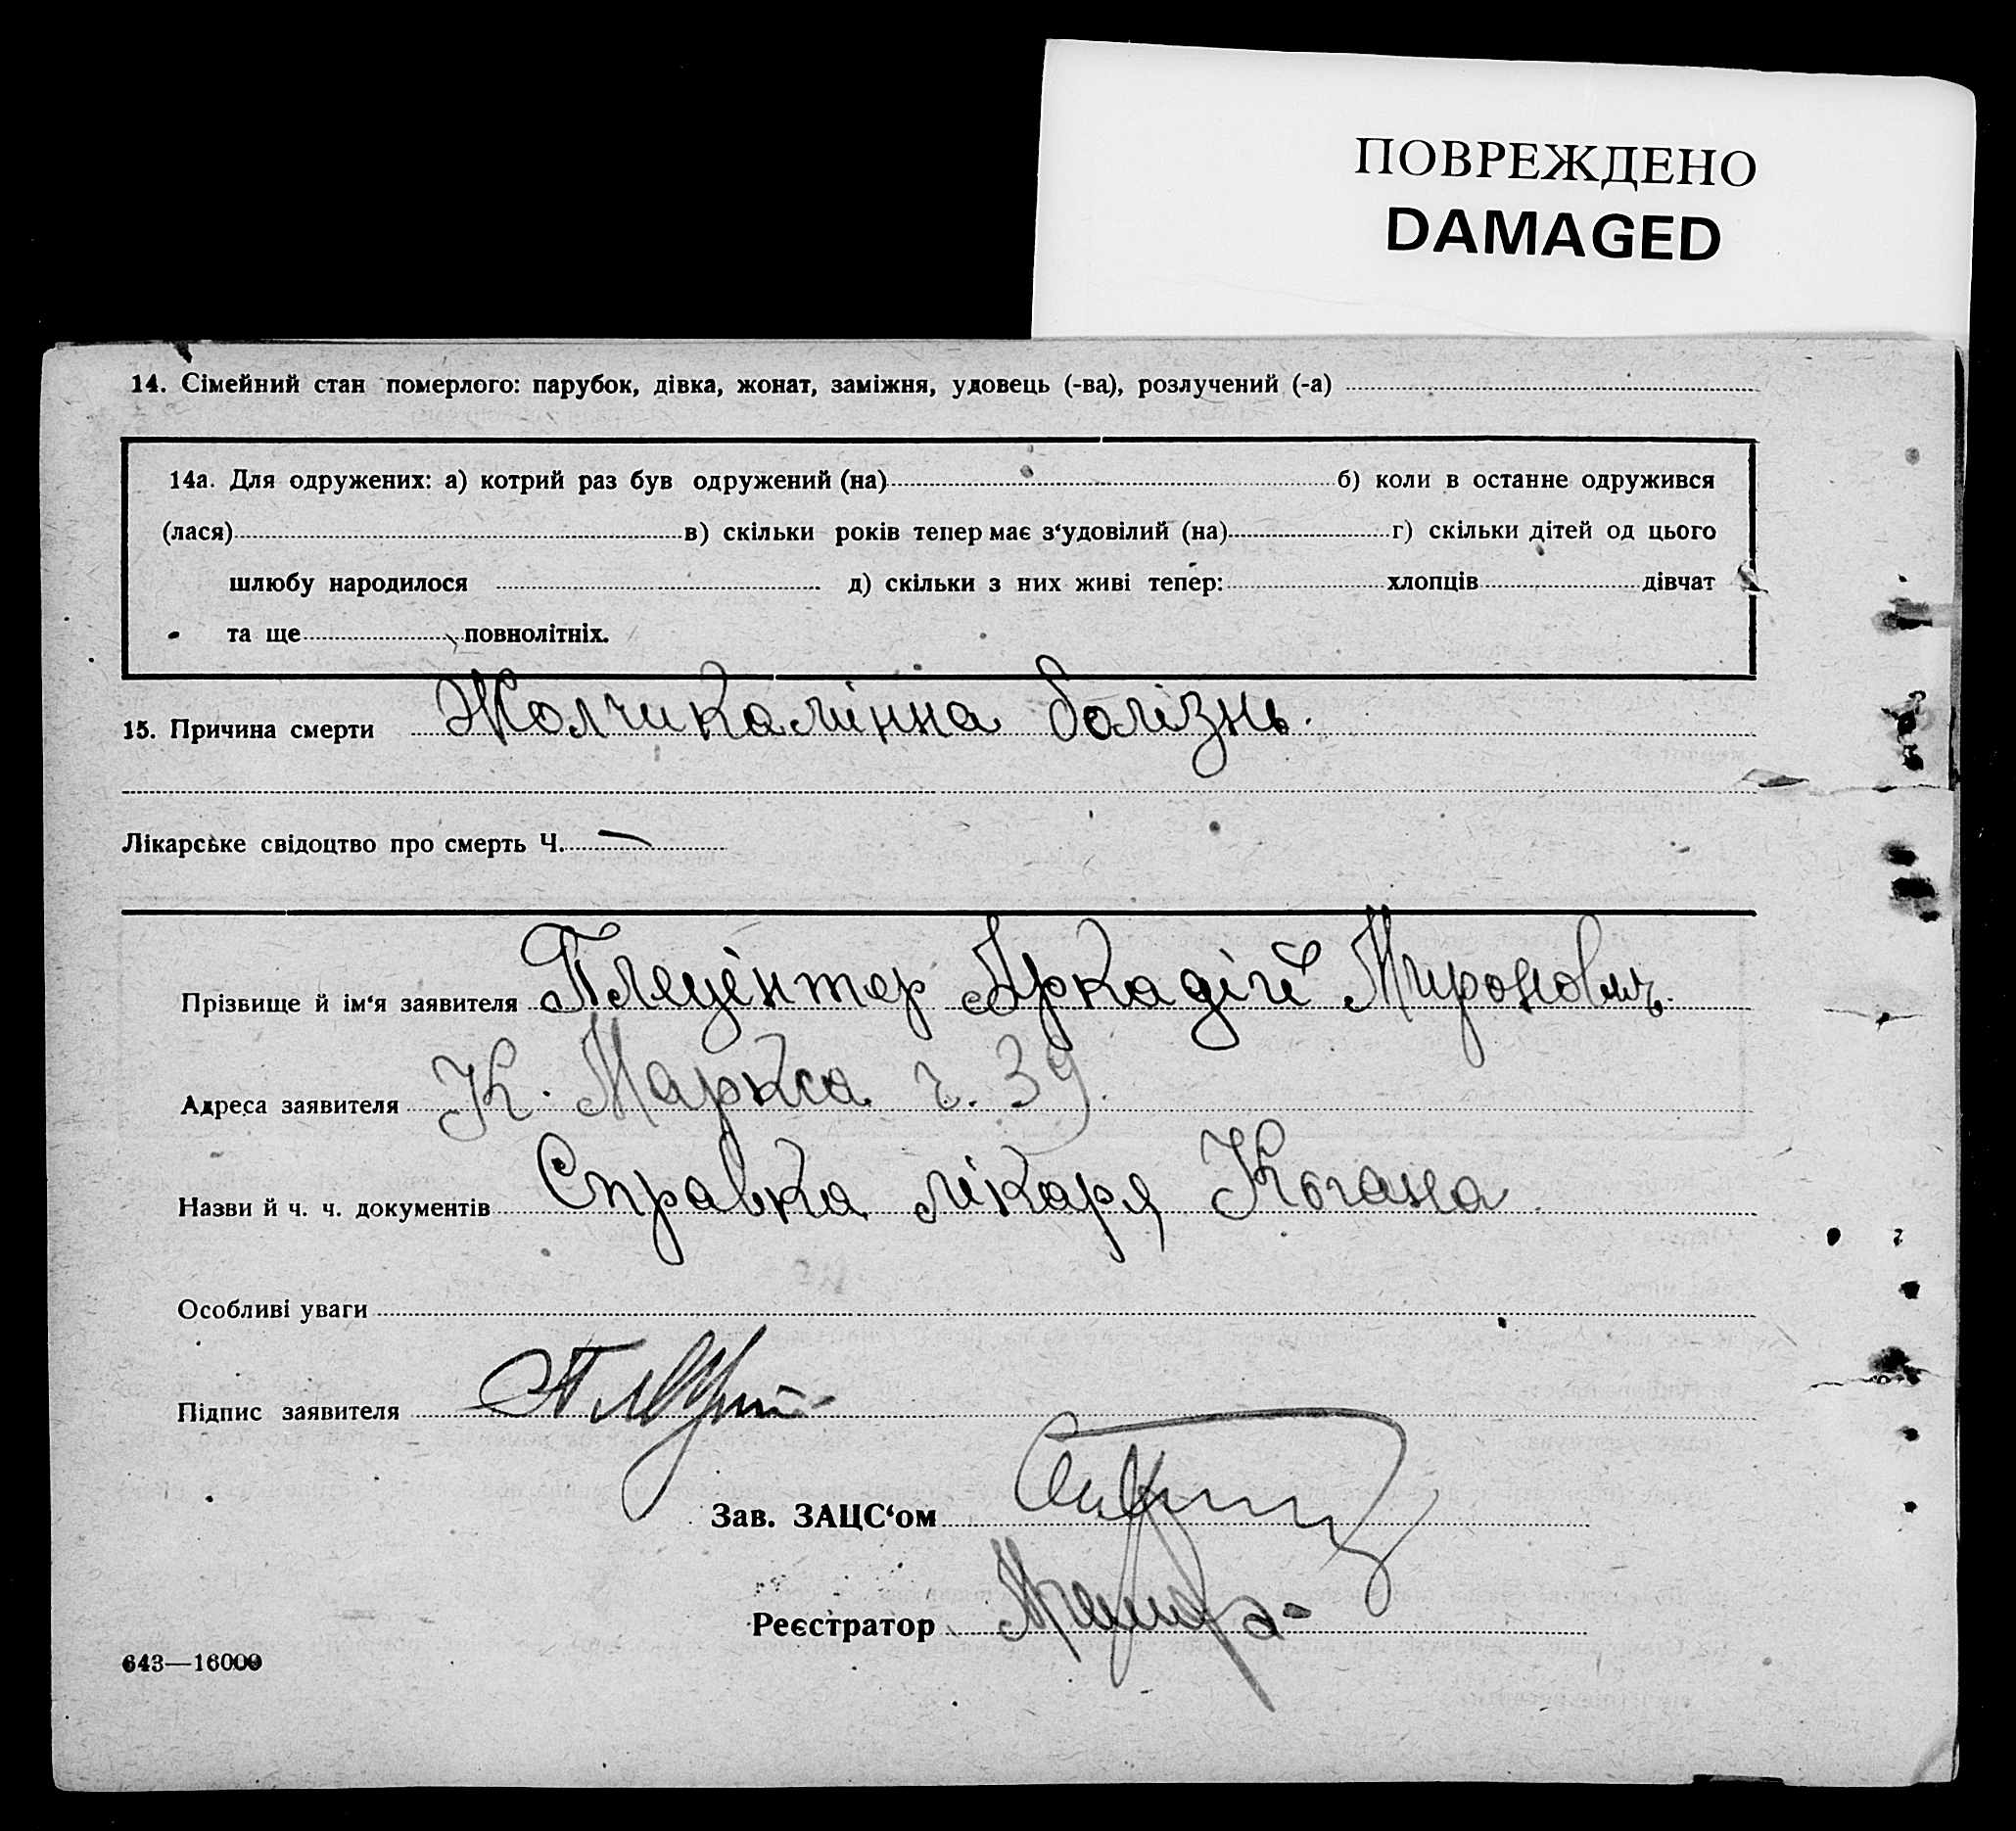 ПОВРЕЖДЕНО
DAMAGED
14. Сімейний стан померлого: парубок, дівка, жонат, заміжня, удовець (-ва), розлучений (-а)
14а. Для одружених: а) котрий раз був одружений (на) б) коли в останне одружився
(лася) в) скільки років тепер має з‘удовілий (на) г) скільки дітей од цього
шлюбу народилося д) скільки з них живі тепер: хлопців дівчат
та ще повнолітніх.
15. Причина смерти Жолчикамінна болізнь.
Лікарське свідоцтво про смерть Ч. —
Прізвище й ім‘я заявителя Пляцентер Аркадігй Миронов
Адреса заявителя К. Маркса ч. 39.
Назви й ч. ч. документів Справка лікаря Когана
Особливі уваги
Підпис заявителя
Зав. ЗАЦС‘ом
Реєстратор
643—16000